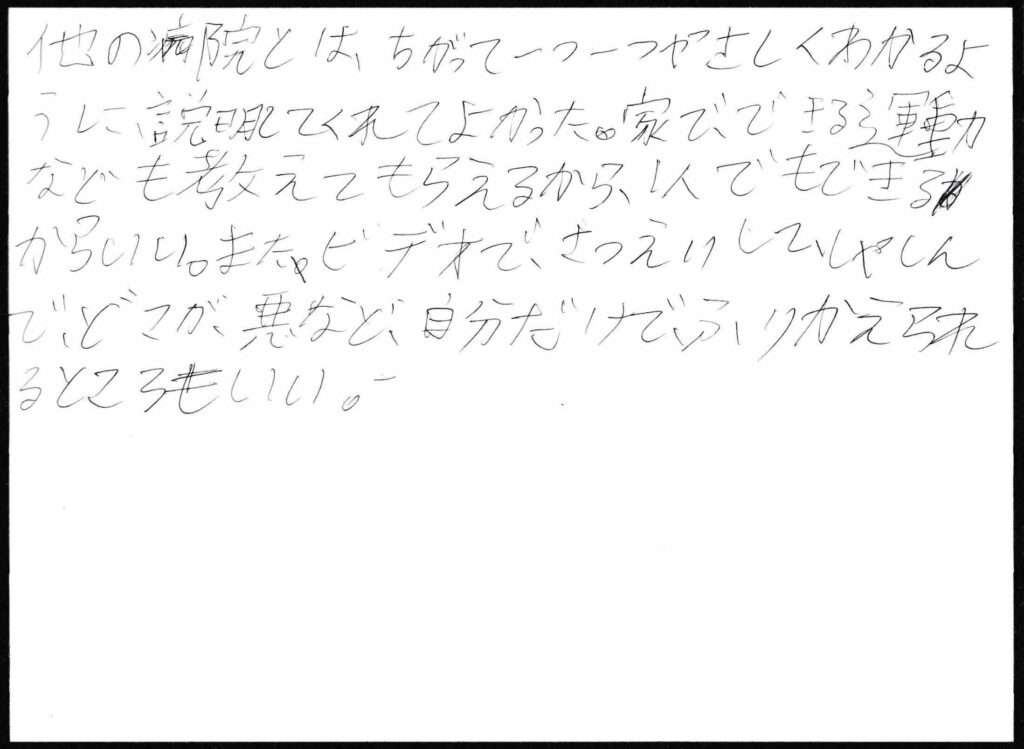 他の病院とは、ちがって一つ一つやさしくわかるよ
うに、説明してくれてよかった。家で、できる運動
なども考えてもらえるから、1人でもできる
からいい。また、ビデオで、さつえいして、しゃしん
で、どこが、悪など、自分だけで、ふりかえられ
るところもいい。